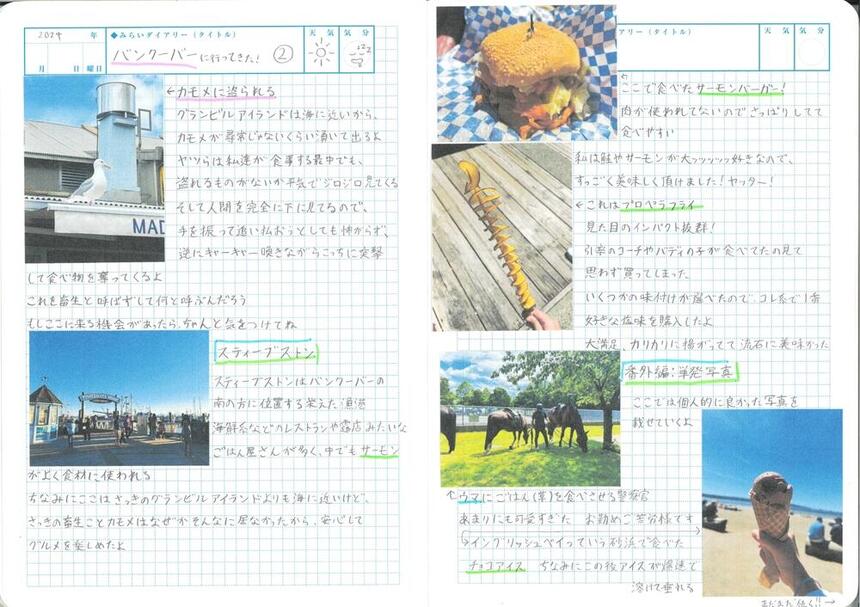 2024 年
月 日 曜日
◆みらいダイアリー(タイトル)
バンクーバーに行ってきた! ②
天 気
気 分
zzz
←カモメに盗られる
グランビルアイランドは海に近いから、
カモメが尋常じゃないくらい湧いて出るよ
ヤツらは私達が食事する最中でも、
盗れるものがないか平気でジロジロ見てくる
そして人間を完全に下に見てるので、
手を振って追い払おうとしても怖がらず、
逆にキャーキャー喚きながらこっちに突撃
して食べ物を奪ってくるよ
これを畜生と呼ばずして何と呼ぶんだろう
もしここに来る機会があったら、ちゃんと気をつけてね
MAD
スティーブストン
スティーブストンはバンクーバーの
南の方に位置する栄えた漁港
海鮮系などのレストランや露店みたいな
ごはん屋さんが多く、中でもサーモン
がよく食材に使われる
ちなみにここはさっきのグランビルアイランドよりも海に近いけど、
さっきの畜生ことカモメはなぜかそんなに居なかったから、安心して
グルメを楽しめたよ
アリー(タイトル)
天 気
気 分
ここで食べたサーモンバーガー!
肉が使われてないのでさっぱりしてて
食べやすい
私は鮭やサーモンが大っッッッッ好きなので、
すっごく美味しく頂けました!ヤッター!
←これはプロペラフライ
見た目のインパクト抜群!
引率のコーチやバディの子が食べてたの見て
思わず買ってしまった
いくつかの味付けが選べたので、コレ系で1番
好きな塩味を購入したよ
大満足、カリカリに揚がってて流石に美味かった
番外編:単発写真
ここでは個人的に良かった写真を
載せていくよ
↑ウマにごはん(草)を食べさせる警察官
あまりにも可愛すぎた お勤めご苦労様です
→イングリッシュベイっていう砂浜で食べた
チョコアイス ちなみにこの後アイスが爆速で
溶けて垂れる
まだまだ続く!!→